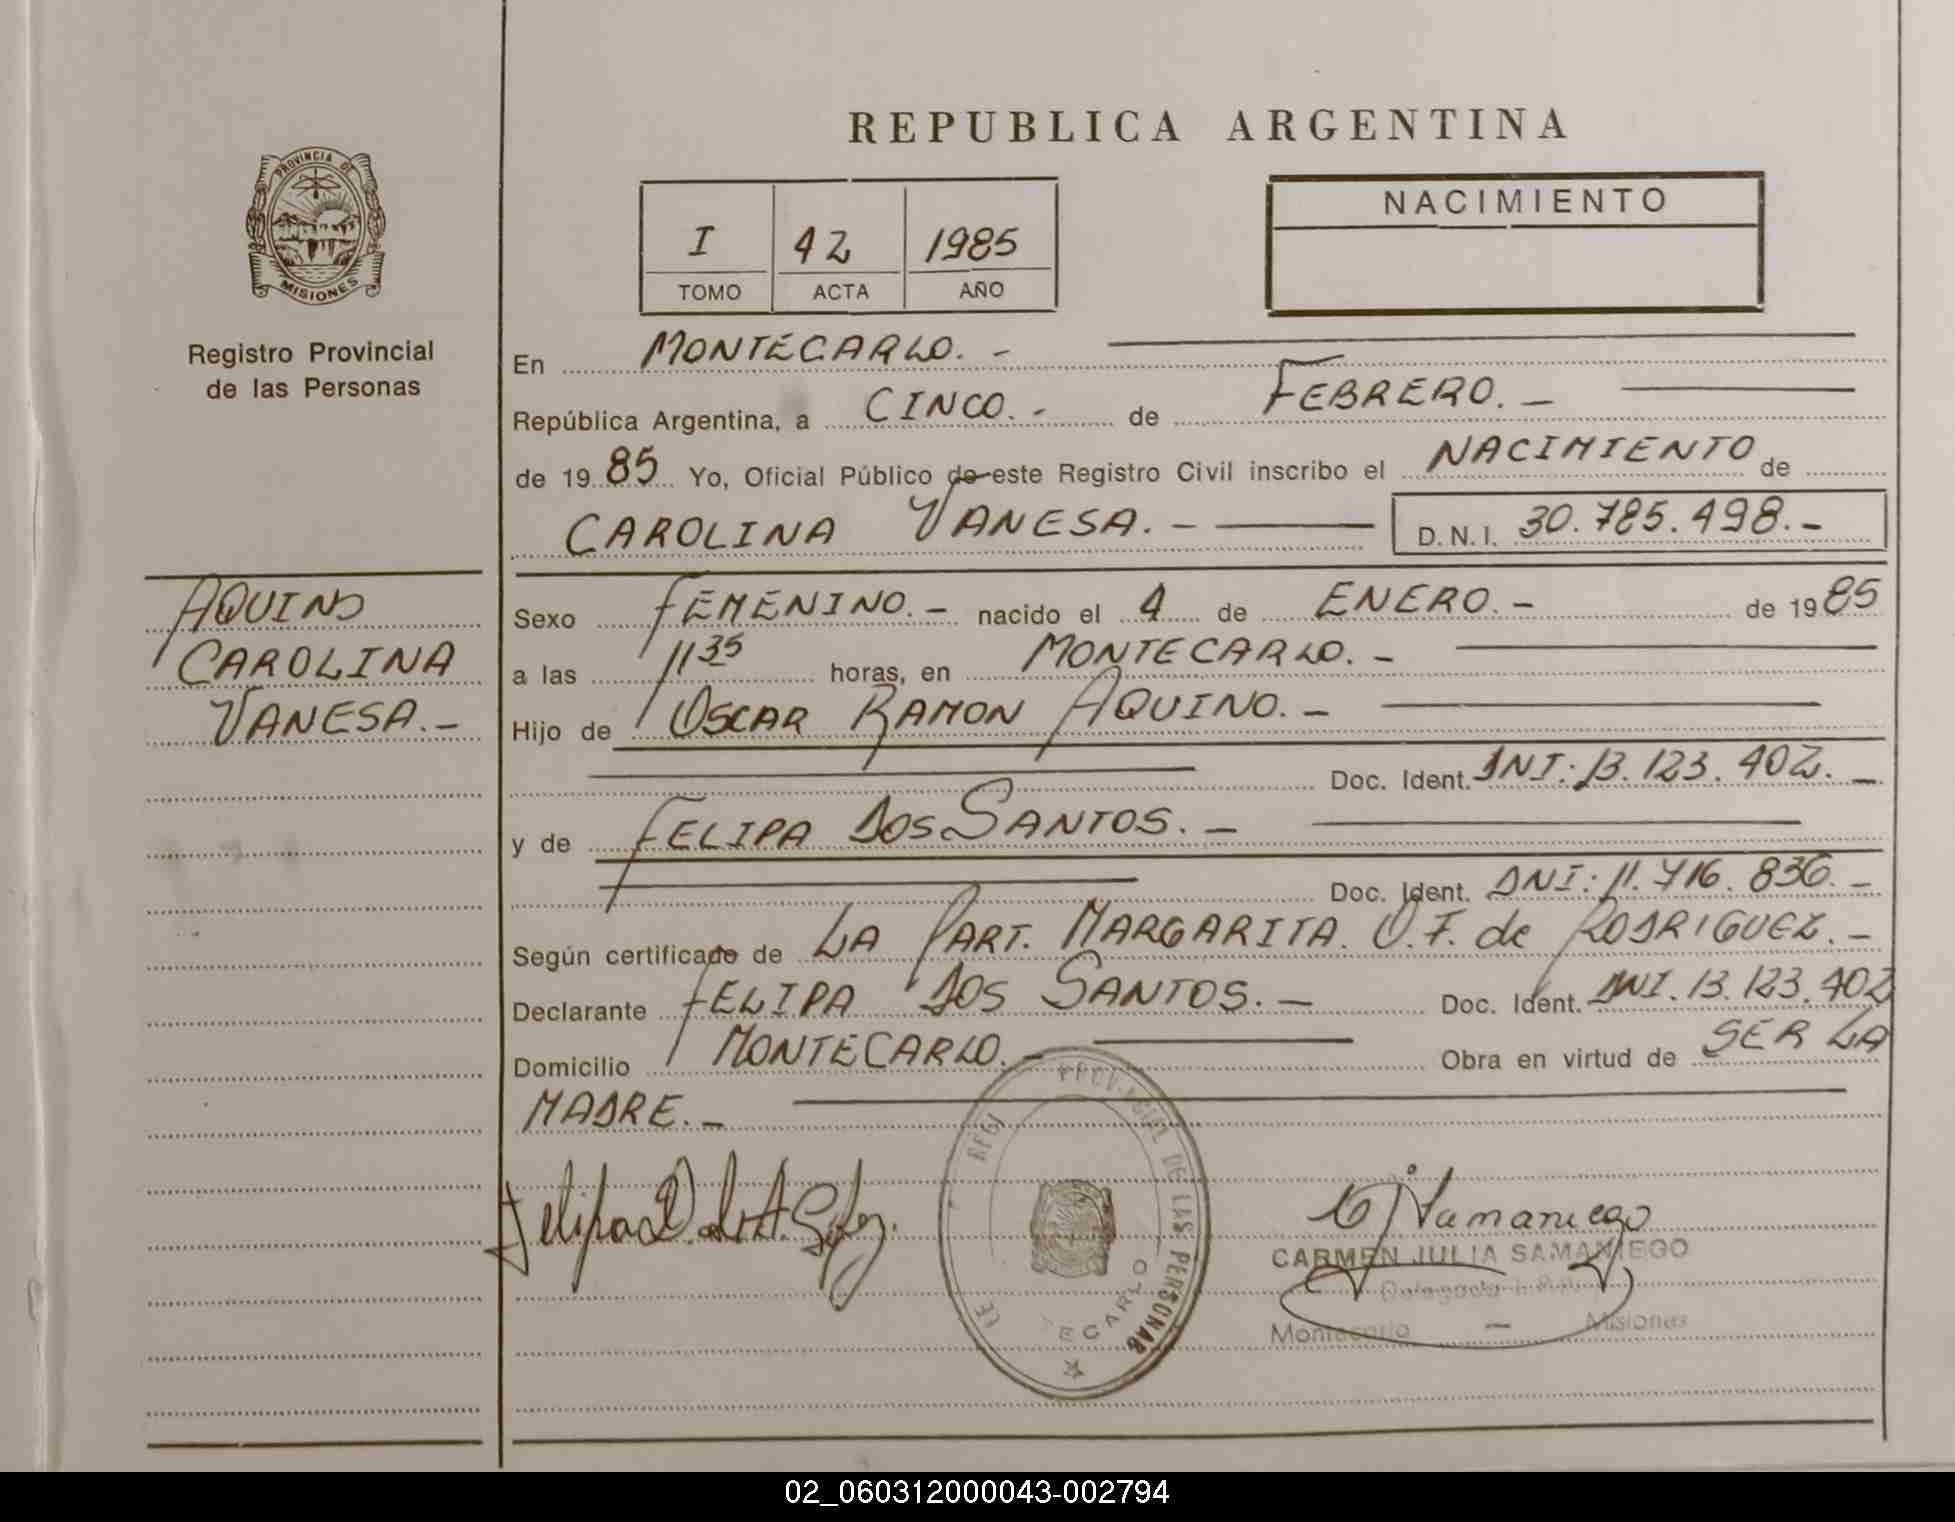 REPUBLICA ARGENTINA
PROVINCIA DE
MISIONES
Registro Provincial
de las Personas
I 42 1985
TOMO ACTA AÑO
NACIMIENTO
En MONTECARLO.-
República Argentina, a CINCO.- de FEBRERO.-
de 1985 Yo, Oficial Público de este Registro Civil inscribo el NACIMIENTO de
CAROLINA VANESA.- D.N.I. 30.785.498.-
AQUINO
CAROLINA
VANESA.-
Sexo FEMENINO.- nacido el 4 de ENERO.- de 1985
a las 11 35 horas, en MONTECARLO.-
Hijo de OSCAR RAMON AQUINO.-
Doc. Ident. DNI: 13.123.402.-
y de FELIPA DOS SANTOS.-
Doc. Ident. DNI: 11.716.836.-
Según certificado de LA PART. MARGARITA. O.F. de RODRIGUEZ.-
Declarante FELIPA DOS SANTOS.- Doc. Ident. DNI. 13.123.402
Domicilio MONTECARLO.- Obra en virtud de SER LA
MADRE.-
PROVINCIAL DE LAS PERSONAS
TECARLO
C J Samaniego
CARMEN JULIA SAMANIEGO
Delegada
Montecarlo - Misiones
02_060312000043-002794